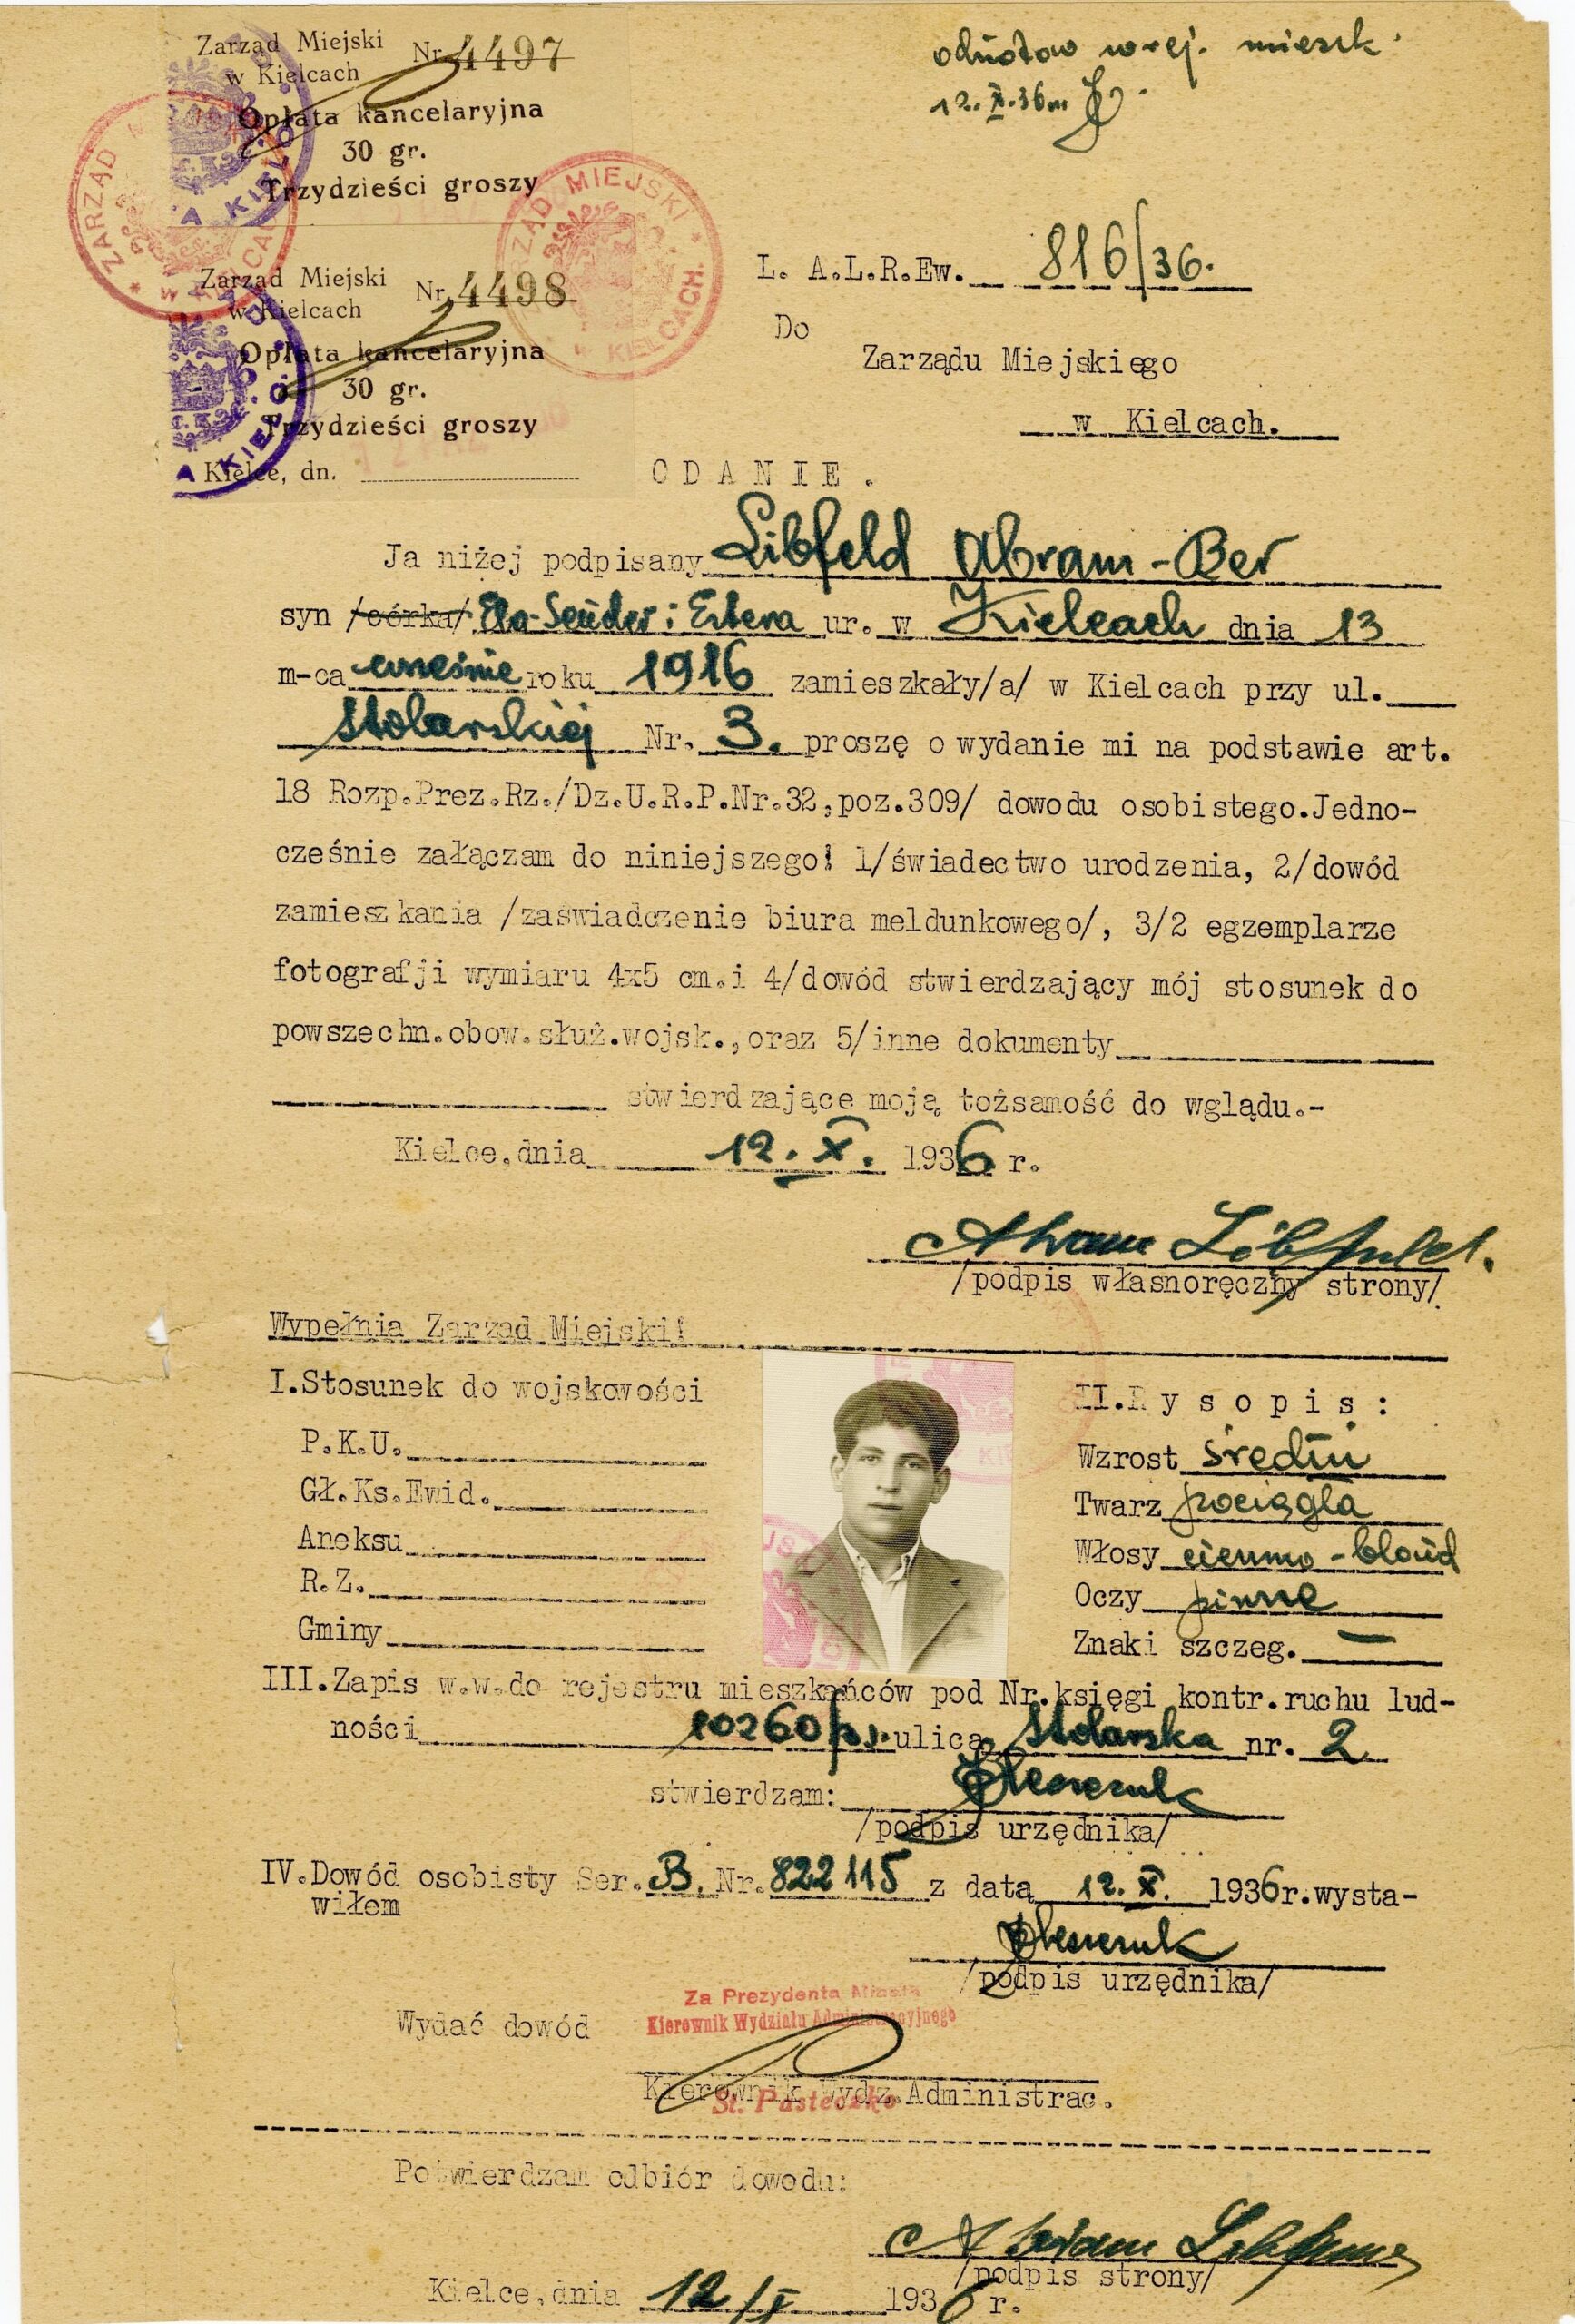 Zarząd Miejski
w Kielcach
Nr. 4497
Opłata kancelaryjna
30 gr.
Trzydzieści groszy
odnotow w rej. mieszk.
12.X.36
ZARZĄD MIEJSKI W KIELCACH.
Zarząd Miejski
w Kielcach
Nr. 4498
Opłata kancelaryjna
30 gr.
Trzydzieści groszy
Kielce, dn.
L. A.L.R.Ew. 816/36.
Do
Zarządu Miejskiego
w Kielcach.
ODANIE.
Ja niżej podpisany Libfeld Abram-Ber
syn /córka/ i Estera ur. w Kielcach dnia 13
m-ca wrześnie roku 1916 zamieszkały/a/ w Kielcach przy ul.
Stolarskiej Nr. 3. proszę o wydanie mi na podstawie art.
18 Rozp.Prez.Rz./Dz.U.R.P.Nr.32,poz.309/ dowodu osobistego.Jedno-
cześnie załączam do niniejszego: 1/świadectwo urodzenia, 2/dowód
zamieszkania /zaświadczenie biura meldunkowego/, 3/2 egzemplarze
fotografji wymiaru 4x5 cm.i 4/dowód stwierdzający mój stosunek do
powszechn.obow.służ.wojsk.,oraz 5/inne dokumenty
stwierdzające moją tożsamość do wglądu.-
Kielce,dnia 12.X. 1936 r.
Abram Libfeld.
/podpis własnoręczny strony/
Wypełnia Zarząd Miejski!
I.Stosunek do wojskowości
P.K.U.
Gł.Ks.Ewid.
Aneksu
R.Z.
Gminy
II.Rysopis:
Wzrost średni
Twarz pociągła
Włosy ciemno-blond
Oczy piwne
Znaki szczeg. —
III.Zapis w.w.do rejestru mieszkańców pod Nr.księgi kontr.ruchu lud-
ności 10260 ulica Stolarska nr. 2
stwierdzam:
/podpis urzędnika/
IV.Dowód osobisty Ser. B. Nr. 822115 z datą 12.X. 1936r.wysta-
wiłem
/podpis urzędnika/
Za Prezydenta Miasta
Kierownik Wydziału Administracyjnego
Wydać dowód
Kierownik Wydz.Administrac.
St. Pasteczko
Potwierdzam odbiór dowodu:
Abram
/podpis strony/
Kielce,dnia 12/X 1936 r.